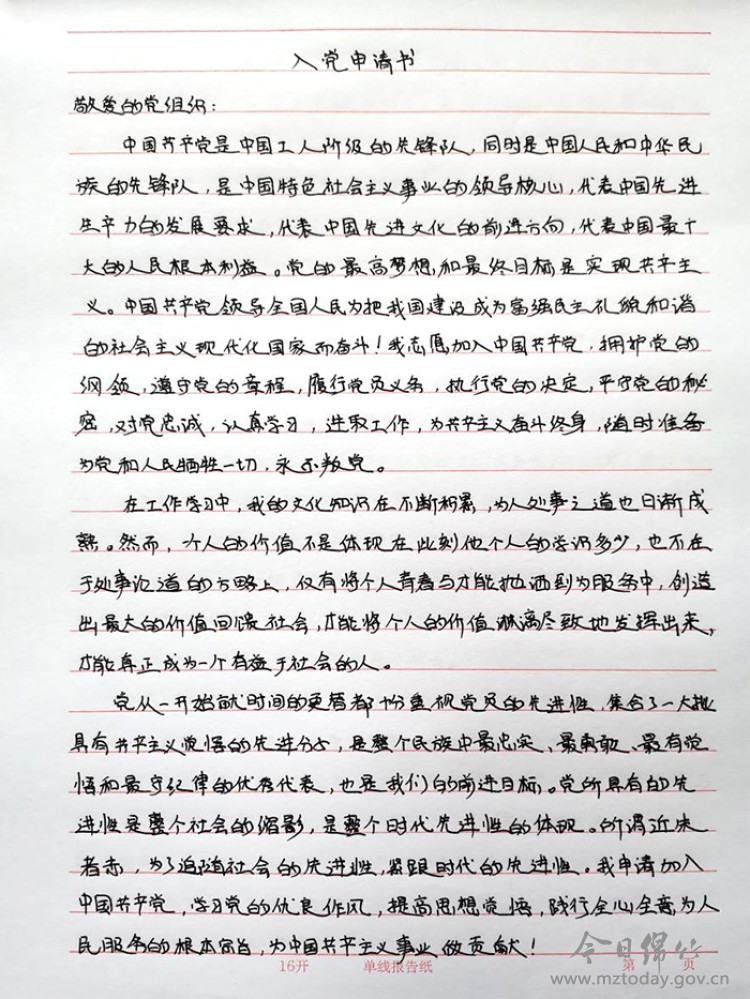 入党申请书
敬爱的党组织:
中国共产党是中国工人阶级的先锋队,同时是中国人民和中华民
族的先锋队,是中国特色社会主义事业的领导核心,代表中国先进
生产力的发展要求,代表中国先进文化的前进方向,代表中国最广
大的人民根本利益。党的最高梦想和最终目标是实现共产主
义。中国共产党领导全国人民为把我国建设成为富强民主礼貌和谐
的社会主义现代化国家而奋斗!我志愿加入中国共产党,拥护党的
纲领,遵守党的章程,履行党员义务,执行党的决定,严守党的秘
密,对党忠诚,认真学习,进取工作,为共产主义奋斗终身,随时准备
为党和人民牺牲一切,永不叛党。
在工作学习中,我的文化知识在不断积累,为人处事之道也日渐成
熟。然而,个人的价值不是体现在此刻他个人的学识多少,也不在
于处事论道的方略上,仅有将个人青春与才能抛洒到为服务中,创造
出最大的价值回馈社会,才能将个人的价值淋漓尽致地发挥出来,
才能真正成为一个有益于社会的人。
党从一开始献时间的更着都十份重视党员的先进性,集合了一大批
具有共产主义觉悟的先进分子,是整个民族中最忠实、最勇敢、最有觉
悟和最守纪律的优秀代表,也是我们的前进目标。党所具有的先
进性是整个社会的缩影,是整个时代先进性的体现。所谓近朱
者赤,为了追随社会的先进性,紧跟时代的先进性。我申请加入
中国共产党,学习党的优良作风,提高思想觉悟,践行全心全意为人
民服务的根本宗旨,为中国共产主义事业做贡献!
今日绵竹
16开 单线报告纸 第 页
www.mztoday.gov.cn